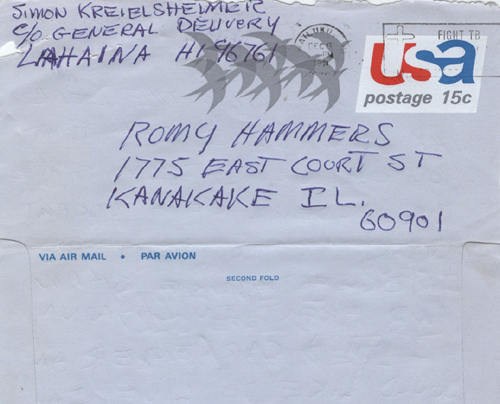 SIMON KREIELSHEIMER
C/O GENERAL DELIVERY
LAHAINA HI 96761
FIGHT TB
usa
postage 15c
ROMY HAMMERS
1775 EAST COURT ST
KANAKAKE IL.
60901
VIA AIR MAIL • PAR AVION
SECOND FOLD